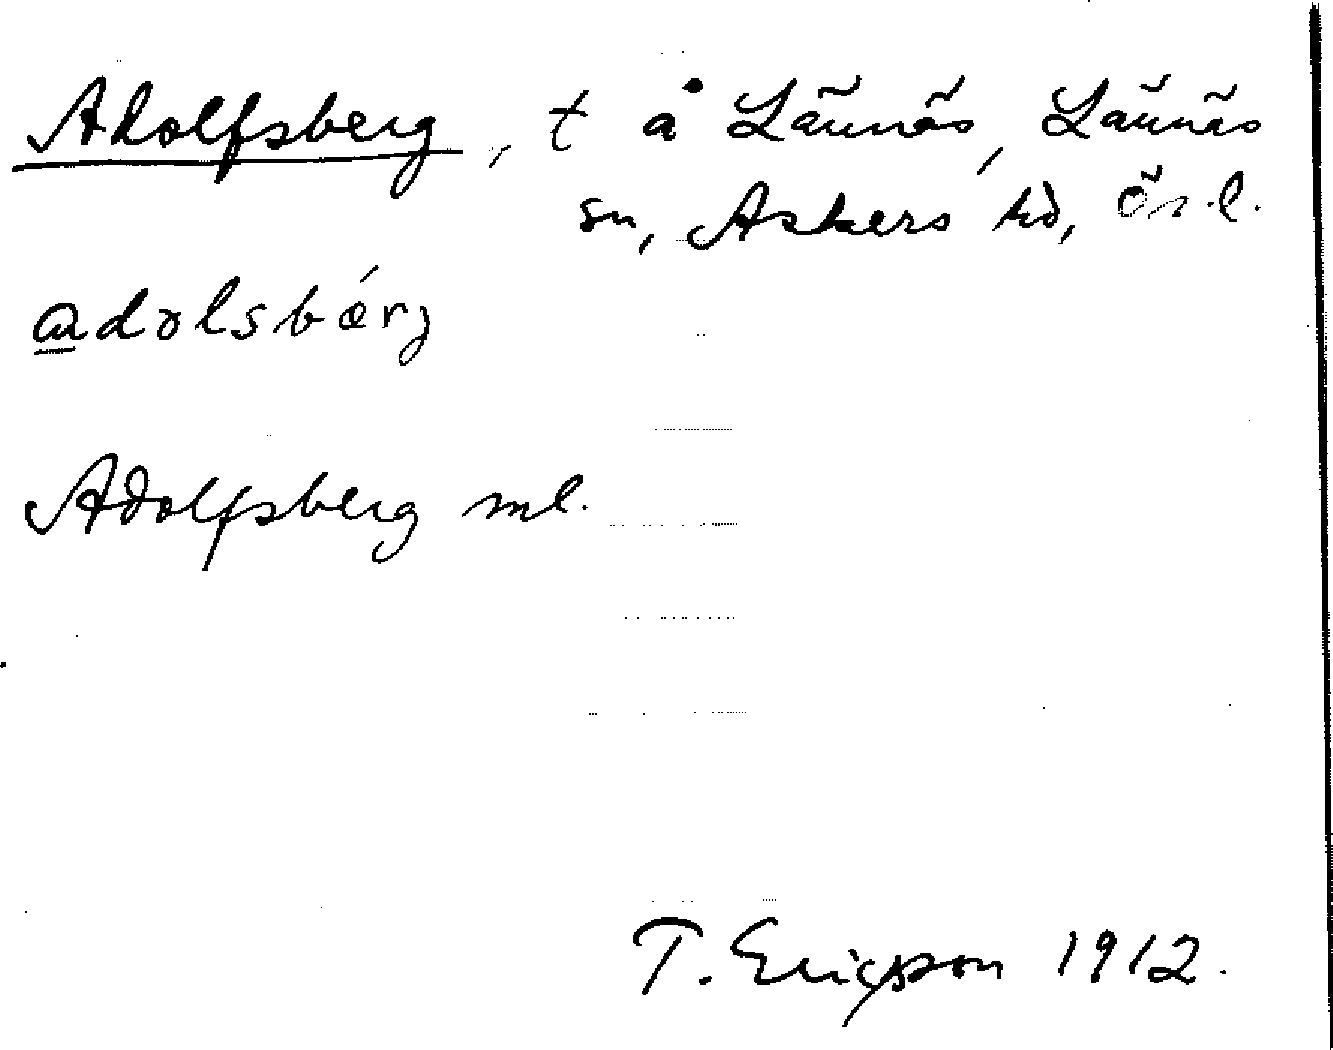 Adolfsberg, t å Lännäs, Lännäs
sn, Askers hd, Ör. l.
adolsbǽrj
Adolfsberg ml.
T. Ericsson 1912.